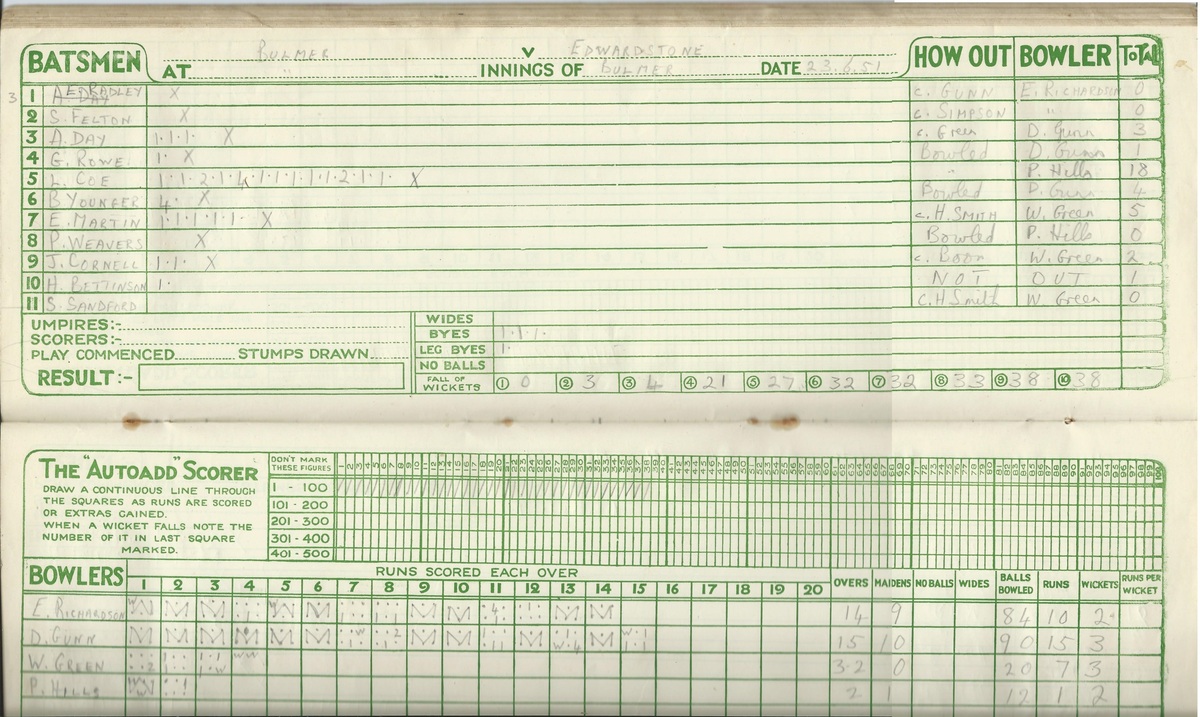 BATSMEN AT BULMER V EDWARDSTONE INNINGS OF BULMER DATE 23.6.51 HOW OUT BOWLER TOTAL
3 1 A E BRADLEY X c. GUNN E. RICHARDSON 0
2 S. FELTON X c. SIMPSON " 0
3 A. DAY 1·1·1· X c. Green D. Gunn 3
4 G. ROWE 1· X Bowled D. Gunn 1
5 L. COE 1·1·2·1·4·1·1·1·1·1·2·1·1· X " P. Hills 18
6 B YOUNGER 4· X Bowled D. Gunn 4
7 E. MARTIN 1·1·1·1·1· X c. H. SMITH W. Green 5
8 P. WEAVERS X Bowled P. Hills 0
9 J. CORNELL 1·1· X c. Boon W. Green 2
10 H. BETTINSON 1· NOT OUT 1
11 S. SANDFORD C. H Smith W Green 0
UMPIRES:- WIDES
SCORERS:- BYES 1·1·1·
PLAY COMMENCED STUMPS DRAWN LEG BYES 1·
NO BALLS
RESULT:- FALL OF WICKETS 1 0 2 3 3 4 4 21 5 27 6 32 7 32 8 33 9 38 10 38
THE "AUTOADD" SCORER
DRAW A CONTINUOUS LINE THROUGH
THE SQUARES AS RUNS ARE SCORED
OR EXTRAS GAINED.
WHEN A WICKET FALLS NOTE THE
NUMBER OF IT IN LAST SQUARE
MARKED.
DON'T MARK THESE FIGURES
1 - 100
101 - 200
201 - 300
301 - 400
401 - 500
BOWLERS RUNS SCORED EACH OVER OVERS MAIDENS NO BALLS WIDES BALLS BOWLED RUNS WICKETS RUNS PER WICKET
1 2 3 4 5 6 7 8 9 10 11 12 13 14 15 16 17 18 19 20
E. RICHARDSON 14 9 84 10 2
D. GUNN 15 10 90 15 3
W. GREEN 3·2 0 20 7 3
P. HILLS 2 1 12 1 2